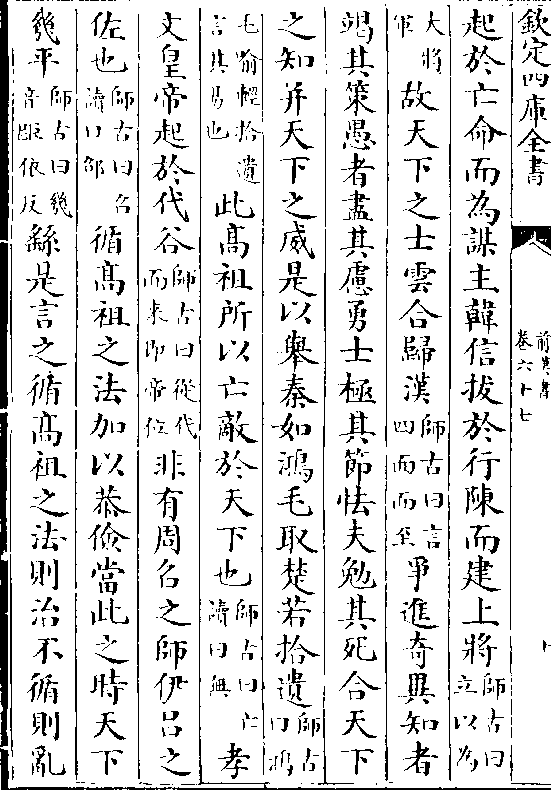 欽定四庫全書
前漢書
卷六十七
起於亡命而為謀主韓信拔於行陳而建上將師古曰立以為
大將軍故天下之士雲合歸漢師古曰言四面而至爭進奇異知者
竭其策愚者盡其慮勇士極其節怯夫勉其死合天下
之知并天下之威是以舉秦如鴻毛取楚若拾遺師古曰鴻
毛喻輕拾遺言其易也此髙祖所以亡敵於天下也師古曰亡讀曰無孝
文皇帝起於代谷師古曰從代而来即帝位非有周召之師伊吕之
佐也師古曰召讀曰邵循髙祖之法加以恭儉當此之時天下
幾平師古曰幾音鉅依反繇是言之循髙祖之法則治不循則亂